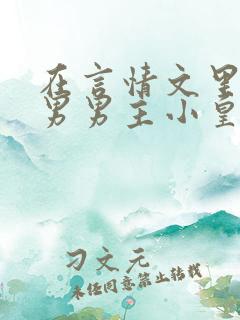 在言情文里
男男主小皇
刁文元
未经同意禁止转载